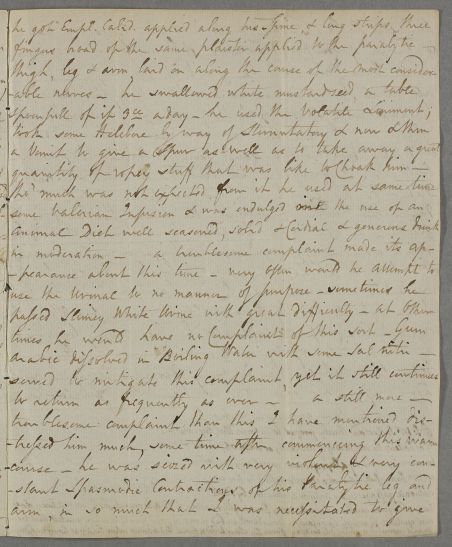 he got Empl. Calid. applied along his Spine & long strips three
fingers broad of the same plaister applied to the paralytic
thigh, leg & arm laid on along the course of the most consider-
able nerves - he swallowed white mustardseed, a table
spoonfull of it 3ce a day - he used the Volatile Liniment;
took some Helebre by way of Sternutatory & now & then
a Vomit to give a Spur as well as to take away a great
quantity of ropey stuff that was like to Choak him -
tho' much was not expected from it he used at same time
some Valerian Infusion & was indulged in the use of an
animal Diet well seasoned, solid & Cordial & generous drink
in moderation - a troublesome complaint made its ap-
-pearance about this time - very often would he attempt to
use the Urinal to no manner of purpose - sometimes he
passed Slimey White Urine with great difficulty - at other
times he would have no Complaints of this sort - Gum
arabic dissolved in Boiling Water with some Sal nitri -
served to mitigate this complaint, yet it still continues
to return as frequently as ever - a still more -
troublesome complaint than this I have mentioned dis-
-tressed him much, some time after commencing this warm
-course - he was seized with very violent & very con-
-stant Spasmodic Contractions of his Paralytic leg and
arm, in so much that I was necessitated to give